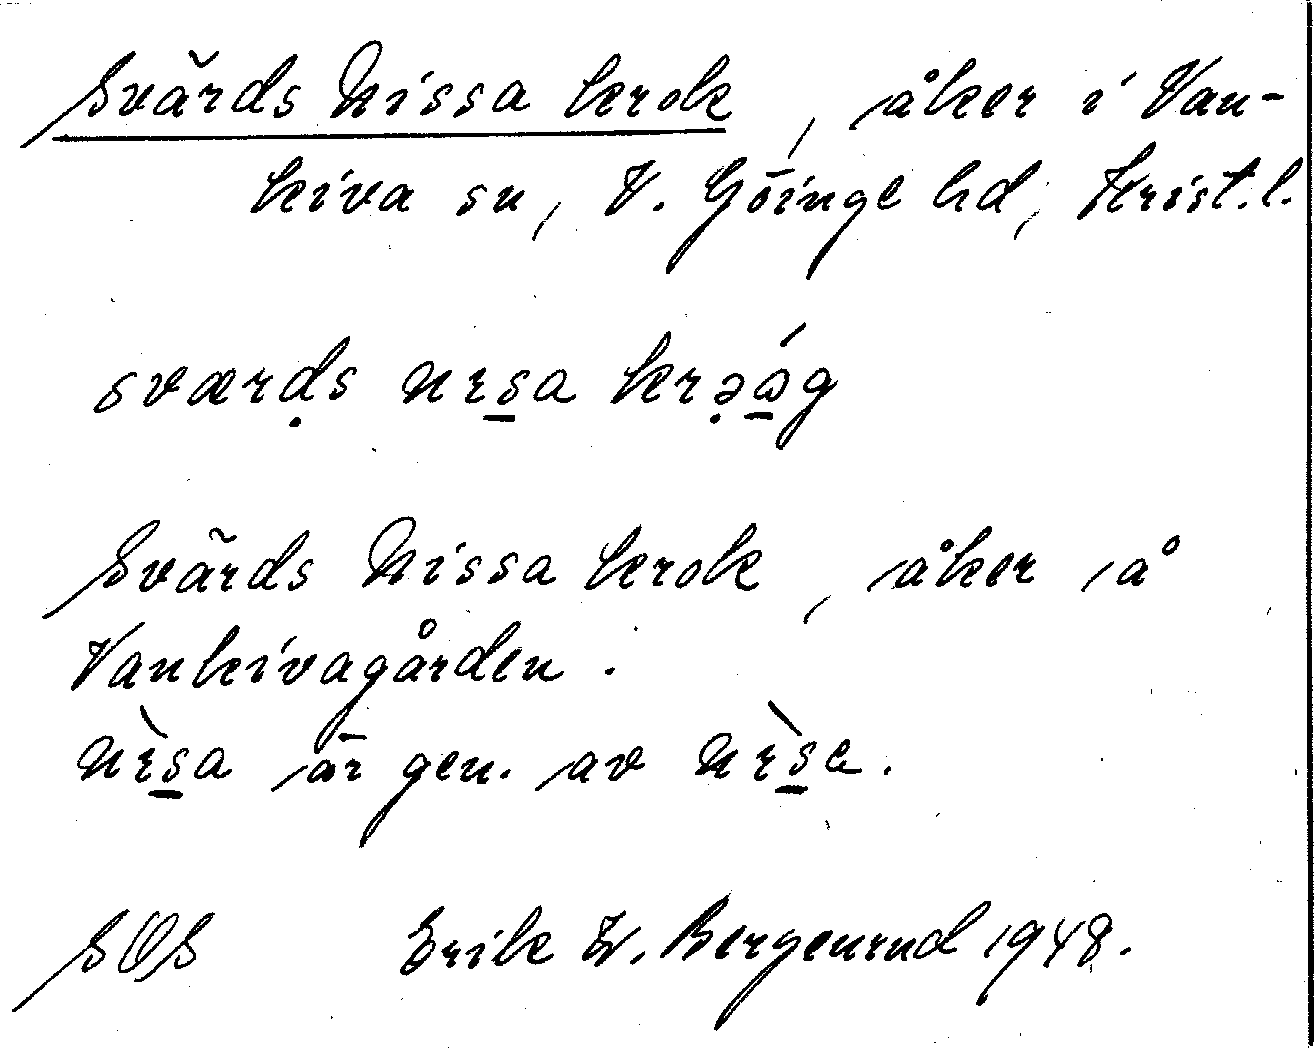 Svärds Nissa krok, åker i Van-
kiva sn, V. Göinge hd, Krist.l.
sværḍs nɪs̱a krə̣ώ̱g
Svärds Nissa krok, åker å
Vankivagården.
nɪ̀s̱a är gen. av nɪ̀s̱e.
SOS Erik W. Bergenrud 1948.